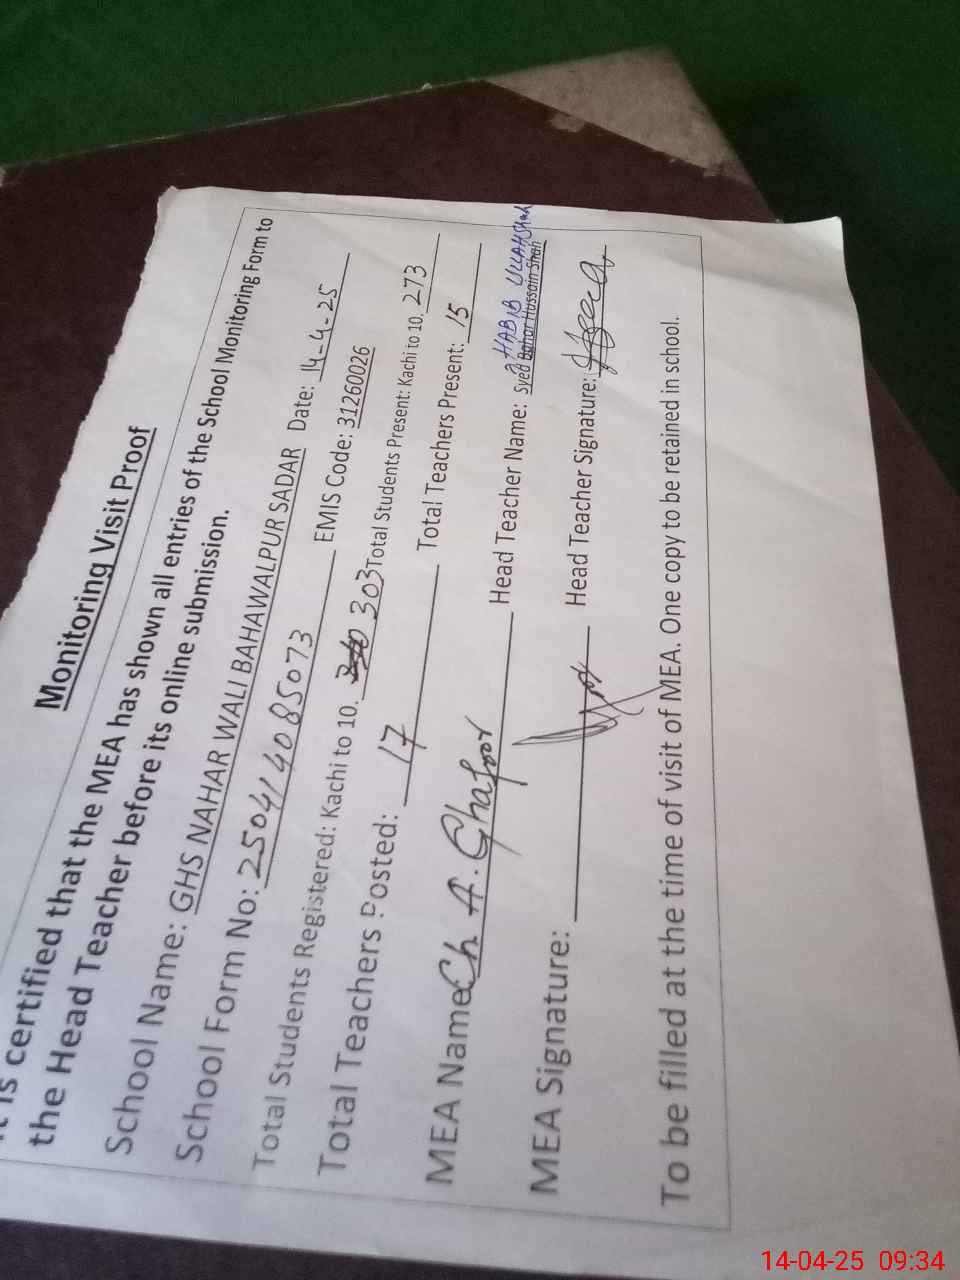 Monitoring Visit Proof
is certified that the MEA has shown all entries of the School Monitoring Form to
the Head Teacher before its online submission.
School Name: GHS NAHAR WALI BAHAWALPUR SADAR Date: 14-4-25
School Form No: 250414085073 EMIS Code: 31260026
Total Students Registered: Kachi to 10. 303 Total Students Present: Kachi to 10, 273
Total Teachers Posted: 17 Total Teachers Present: 15
HABIB ULLAH Shah
MEA Name: Ch. A. Ghafoor Head Teacher Name: Syed Bahar Hussain Shah
MEA Signature: Head Teacher Signature:
To be filled at the time of visit of MEA. One copy to be retained in school.
14-04-25 09:34